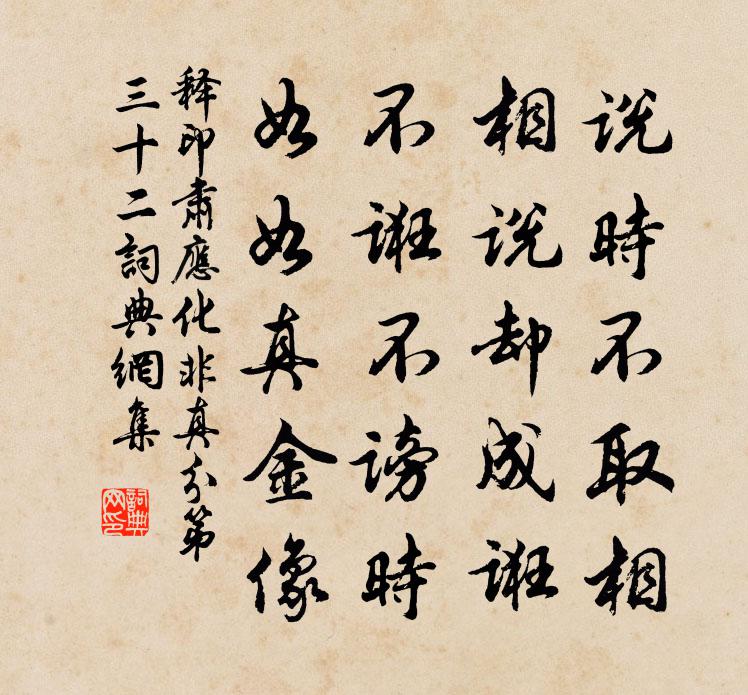 説時不取相
相説却成誑
不誑不謗時
如如真金像
释印肃應化非真分第
三十二詞典網集
詞典
网印